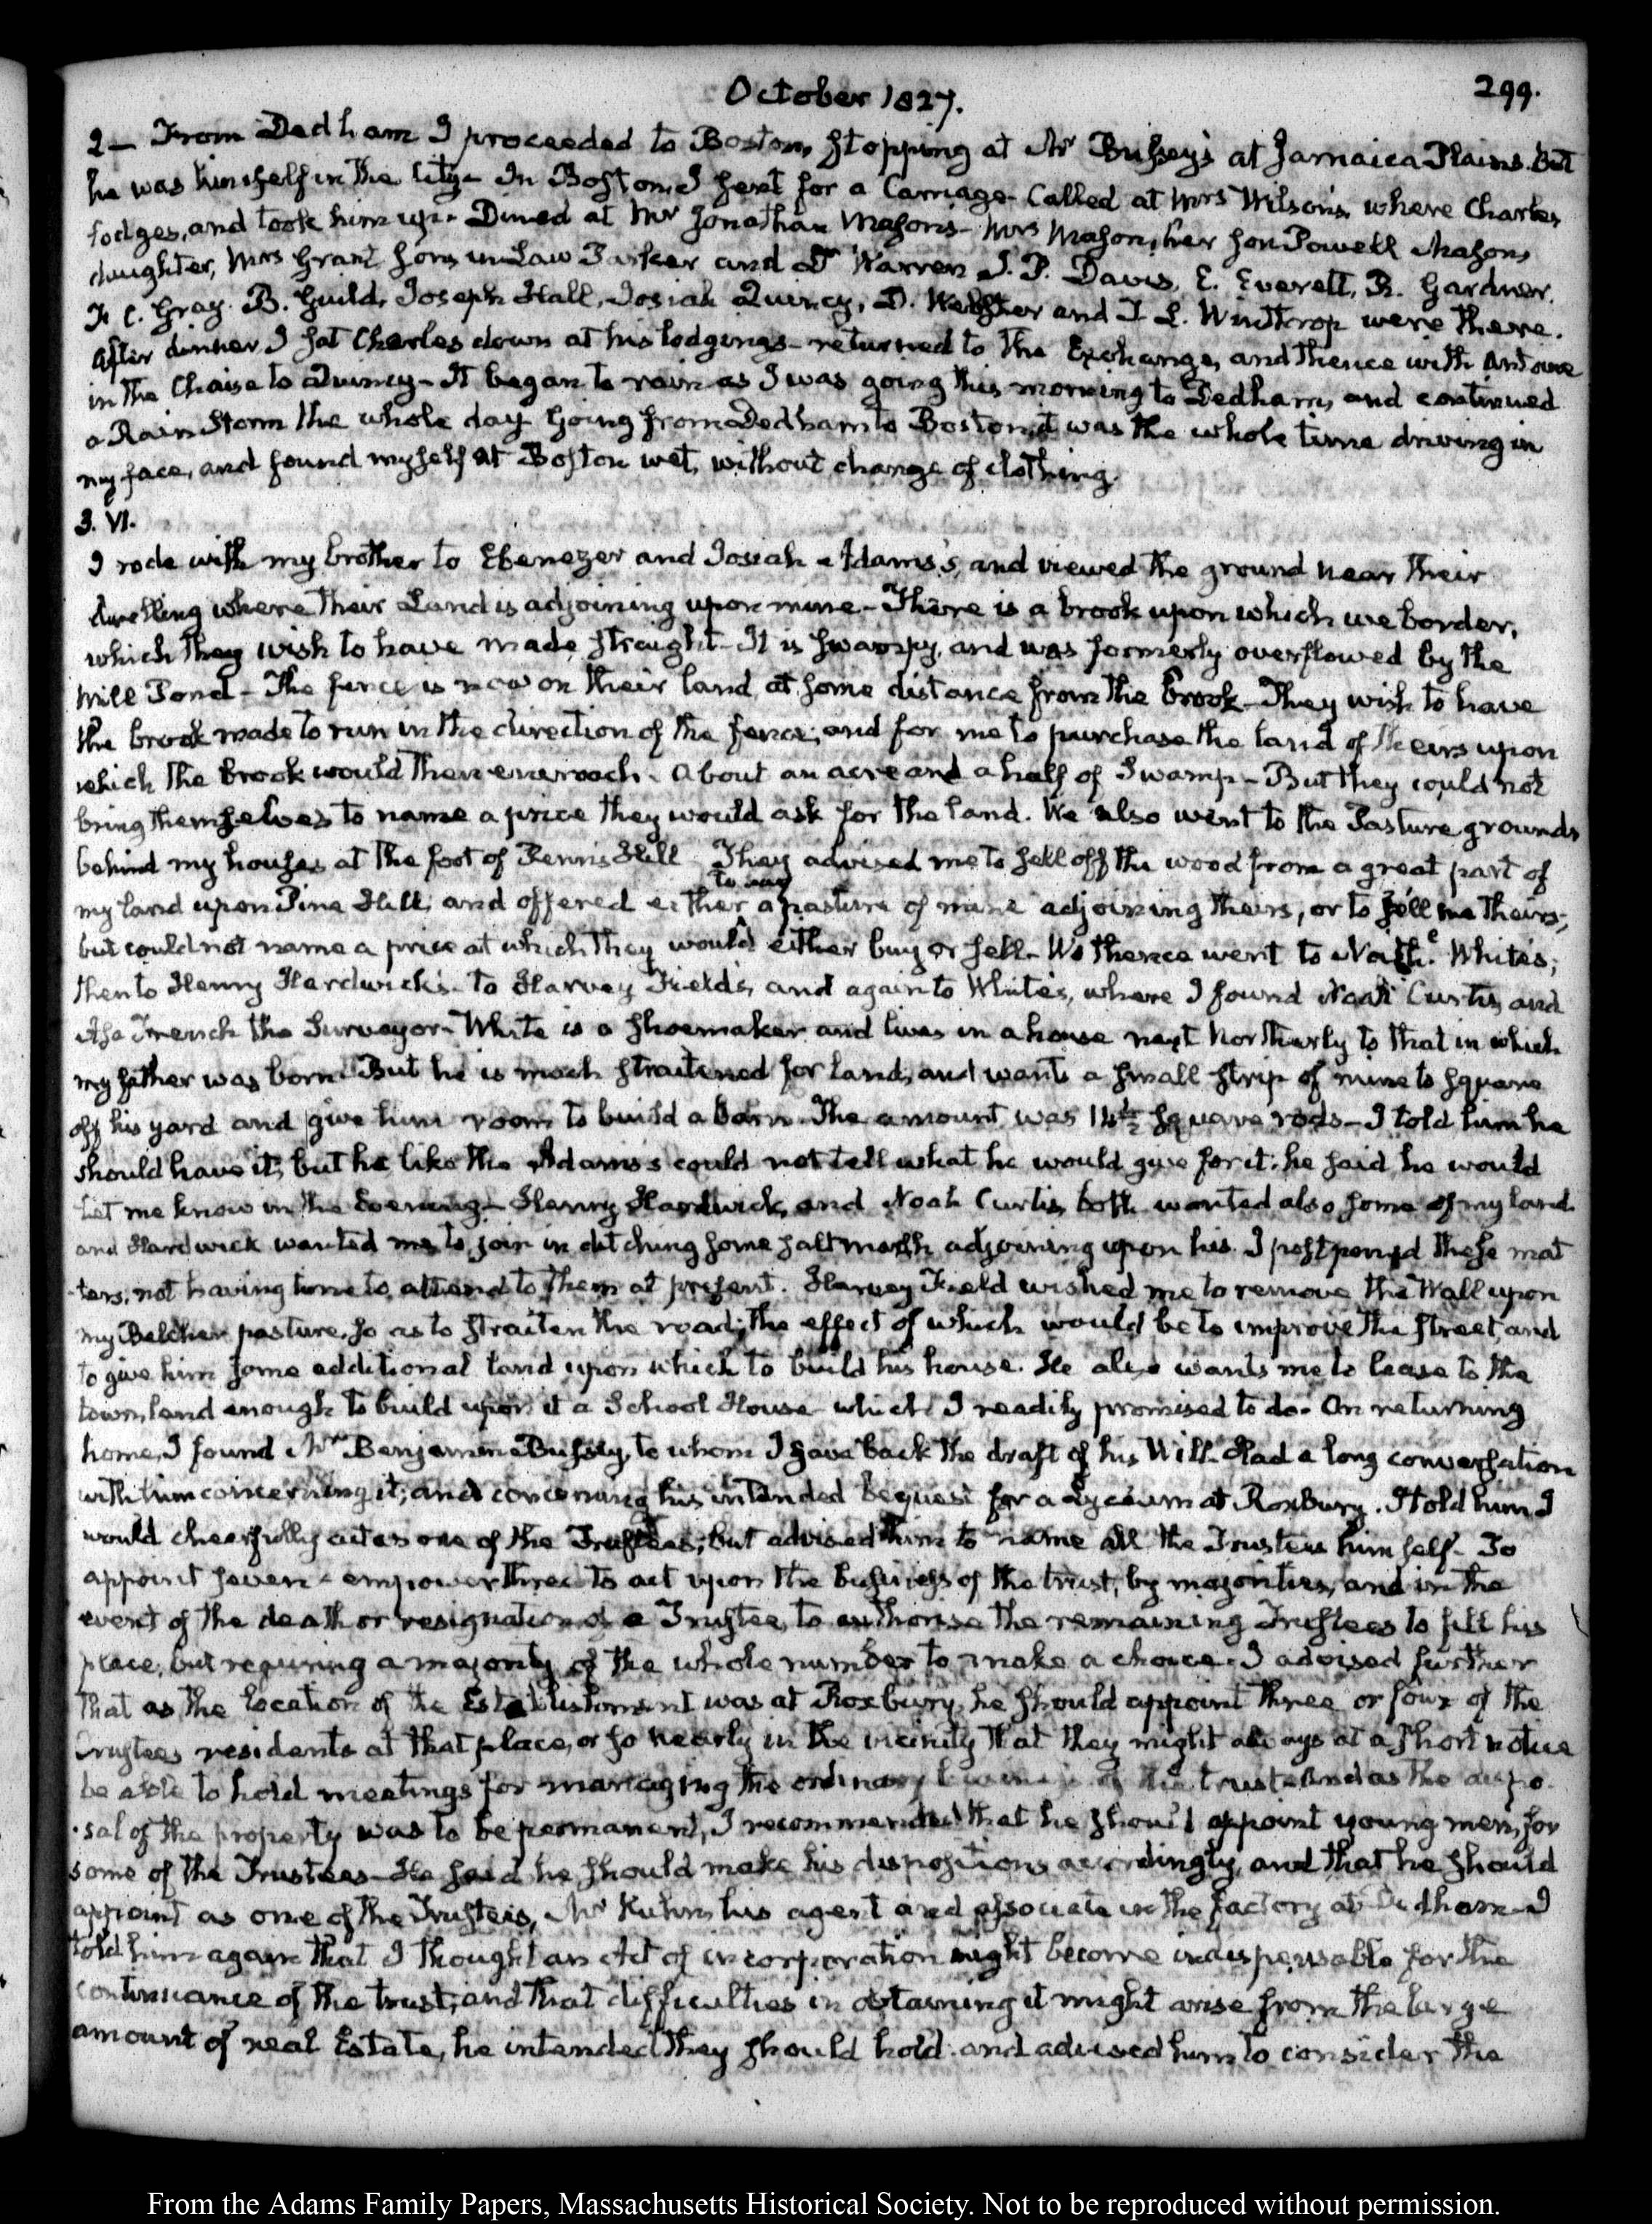 October 1827.
299.
2— From Dedham I proceeded to Boston, stopping at Mr Bussey's at Jamaica Plains. But
he was himself in the City— In Boston, I sent for a Carriage— Called at Mrs Wilson's, where Charles
lodges, and took him up— Dined at Mr Jonathan Mason's— Mrs Mason, her son Powell Mason,
daughter, Mrs Grant, son in Law Parker and Dr Warren J. P. Davis, E. Everett, R. Gardner.
F. C. Gray. B. Guild, Joseph Hall, Josiah Quincy, D. Webster and T. L. Winthrop were there.
After dinner I sat Charles down at his lodgings— returned to the Exchange, and thence with Antoine
in the Chaise to Quincy— It began to rain as I was going this morning to Dedham, and continued
a Rain Storm the whole day. Going from Dedham to Boston, it was the whole time driving in
my face, and found myself at Boston wet, without change of clothing.
3. VI.
I rode with my brother to Ebenezer and Josiah Adams's, and viewed the ground near their
dwelling where their Land is adjoining upon mine— There is a brook upon which we border,
which they wish to have made straight— It is swampy, and was formerly overflowed by the
Mill Pond— The fence is now on their land, at some distance from the brook— They wish to have
the brook made to run in the direction of the fence; and for me to purchase the land of theirs upon
which the brook would then encroach. About an acre and a half of Swamp— But they could not
bring themselves to name a price they would ask for the land. We also went to the Pasture grounds
behind my houses at the foot of Penns Hill They advised me to sell off the wood from a great part of
my land upon Pine Hill; and offered either to buy a pasture of mine adjoining theirs, or to sell me theirs;
but could not name a price at which they would either buy or sell— We thence went to Nathl. White's;
then to Henry Hardwick's— to Harvey Field's, and again to White's, where I found Noah Curtis, and
Asa French the Surveyor— White is a Shoemaker and lives in a house next Northerly to that in which
my father was born. But he is much straitened for land, and wants a small strip of mine to square
off his yard and give him room to build a barn. The amount was 14½ square rods— I told him he
should have it, but he like the Adams's could not tell what he would give for it: he said he would
let me know in the Evening— Henry Hardwick, and Noah Curtis, both wanted also some of my land.
and Hardwick wanted me to join in ditching some salt marsh adjoining upon his. I postponed these mat
-ters, not having time to attend to them at present. Harvey Field wished me to remove the Wall upon
my Belcher pasture, so as to straiten the road; the effect of which would be to improve the street, and
to give him some additional land upon which to build his house. He also wants me to lease to the
town, land enough to build upon it a School House which I readily promised to do— On returning
home, I found Mr Benjamin Bussey, to whom I gave back the draft of his Will— Had a long conversation
with him concerning it; and concerning his intended bequest for a Lyceum at Roxbury. I told him I
would cheerfully act as one of the Trustees; but advised him to name all the Trustees himself— To
appoint seven— empower three to act upon the business of the trust, by majorities, and in the
event of the death or resignation of a Trustee, to authorise the remaining Trustees to fill his
place, but requiring a majority of the whole number to make a choice— I advised further
that as the location of the Establishment was at Roxbury, he should appoint three or four of the
Trustees residents at that place, or so nearly in the vicinity that they might always at a short notice
be able to hold meetings for managing the ordinary business of the trust— And as the dispo
-sal of the property was to be permanent, I recommended that he should appoint young men, for
some of the Trustees— He said he should make his dispositions accordingly, and that he should
appoint as one of the Trustees, Mr Kuhn, his agent and associate in the factory at Dedham— I
told him again that I thought an Act of incorporation might become indispensable for the
continuance of the trust; and that difficulties in obtaining it might arise from the large
amount of real Estate, he intended they should hold: and advised him to consider the
From the Adams Family Papers, Massachusetts Historical Society. Not to be reproduced without permission.